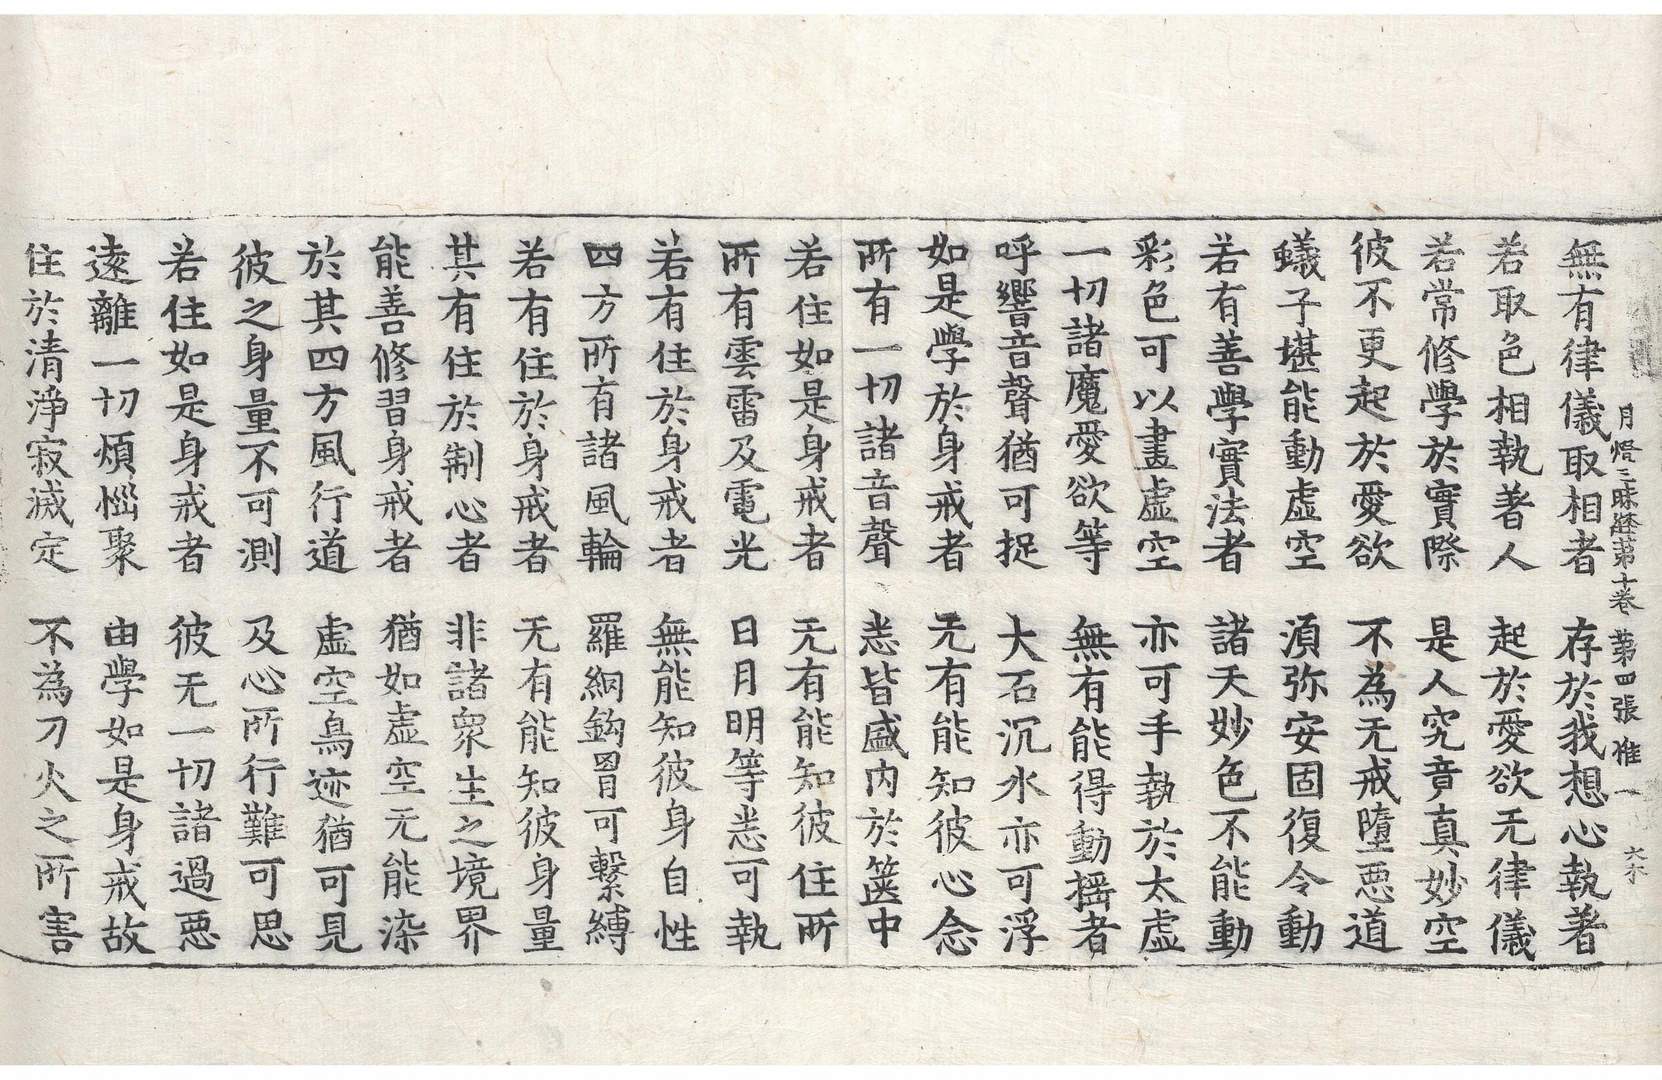 月燈三昧經第十卷 第四張 惟一
無有律儀取相者 存於我想心執著
若取色相執著人 起於愛欲无律儀
若常修學於實際 是人究竟真妙空
彼不更起於愛欲 不為无戒墮惡道
蟻子堪能動虛空 湏弥安固復令動
若有善學實法者 諸天妙色不能動
彩色可以畫虛空 亦可手執於太虛
一切諸魔愛欲等 無有能得動搖者
呼響音聲猶可捉 大石沉水亦可浮
如是學於身戒者 无有能知彼心念
所有一切諸音聲 悉皆盛內於篋中
若住如是身戒者 无有能知彼住所
所有雲雷及電光 日月明等悉可執
若有住於身戒者 無能知彼身自性
四方所有諸風輪 羅網鈎罥可繫縛
若有住於身戒者 无有能知彼身量
其有住於制心者 非諸衆生之境界
能善修習身戒者 猶如虛空无能染
於其四方風行道 虛空鳥迹猶可見
彼之身量不可測 及心所行難可思
若住如是身戒者 彼无一切諸過惡
遠離一切煩惱聚 由學如是身戒故
住於清淨寂滅定 不為刀火之所害